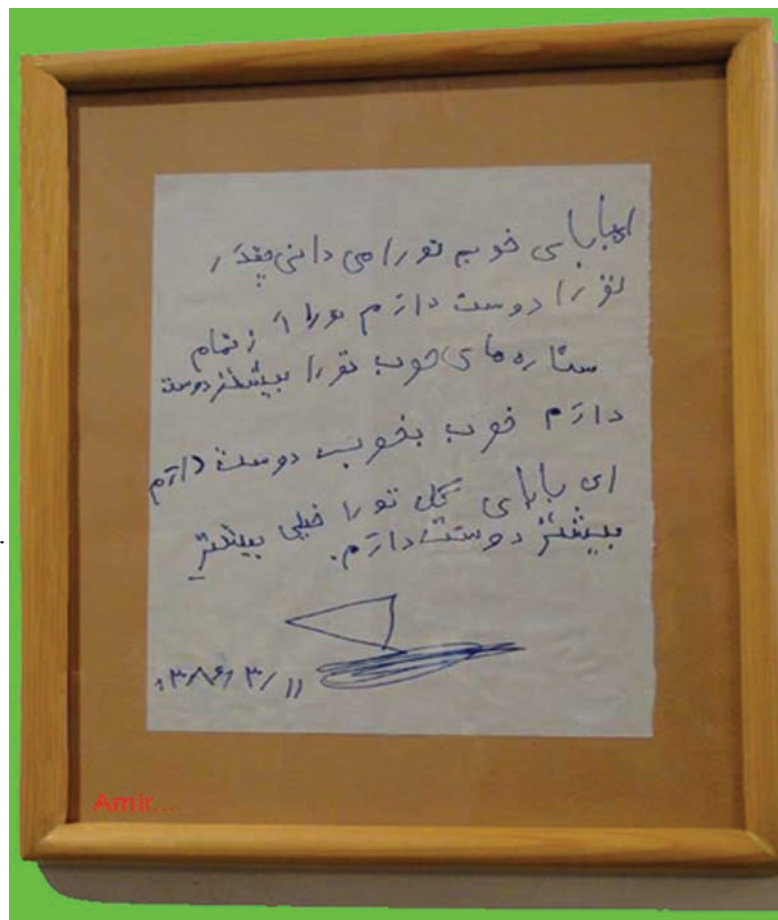 ای بابای خوبم تو را می دانی چقدر
تو را دوست دارم تو را از تمام
ستاره های خوب تو را بیشتر دوست
دارم خوب بخوب دوست دارم
ای بابای گل تو را خیلی بیشتر
بیشتر دوست دارم.
۱۳۸۶/۳/۱۱
Amir...